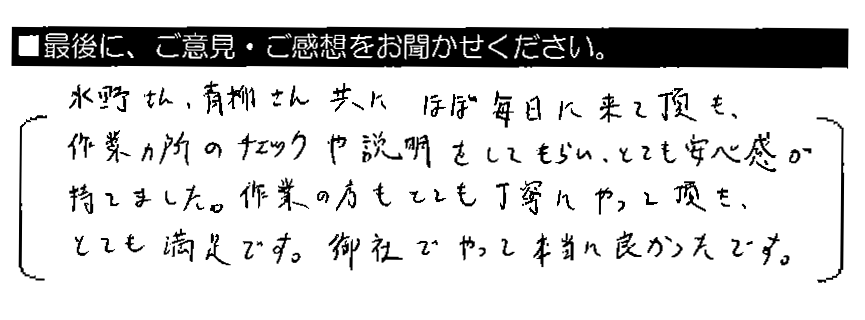 ■最後に、ご意見・ご感想をお聞かせください。
水野さん、青柳さん共に ほぼ毎日に来て頂き、
作業カ所のチェックや説明をしてもらい、とても安心感が
持てました。作業の方もとても丁寧にやって頂き、
とても満足です。御社でやって本当に良かったです。